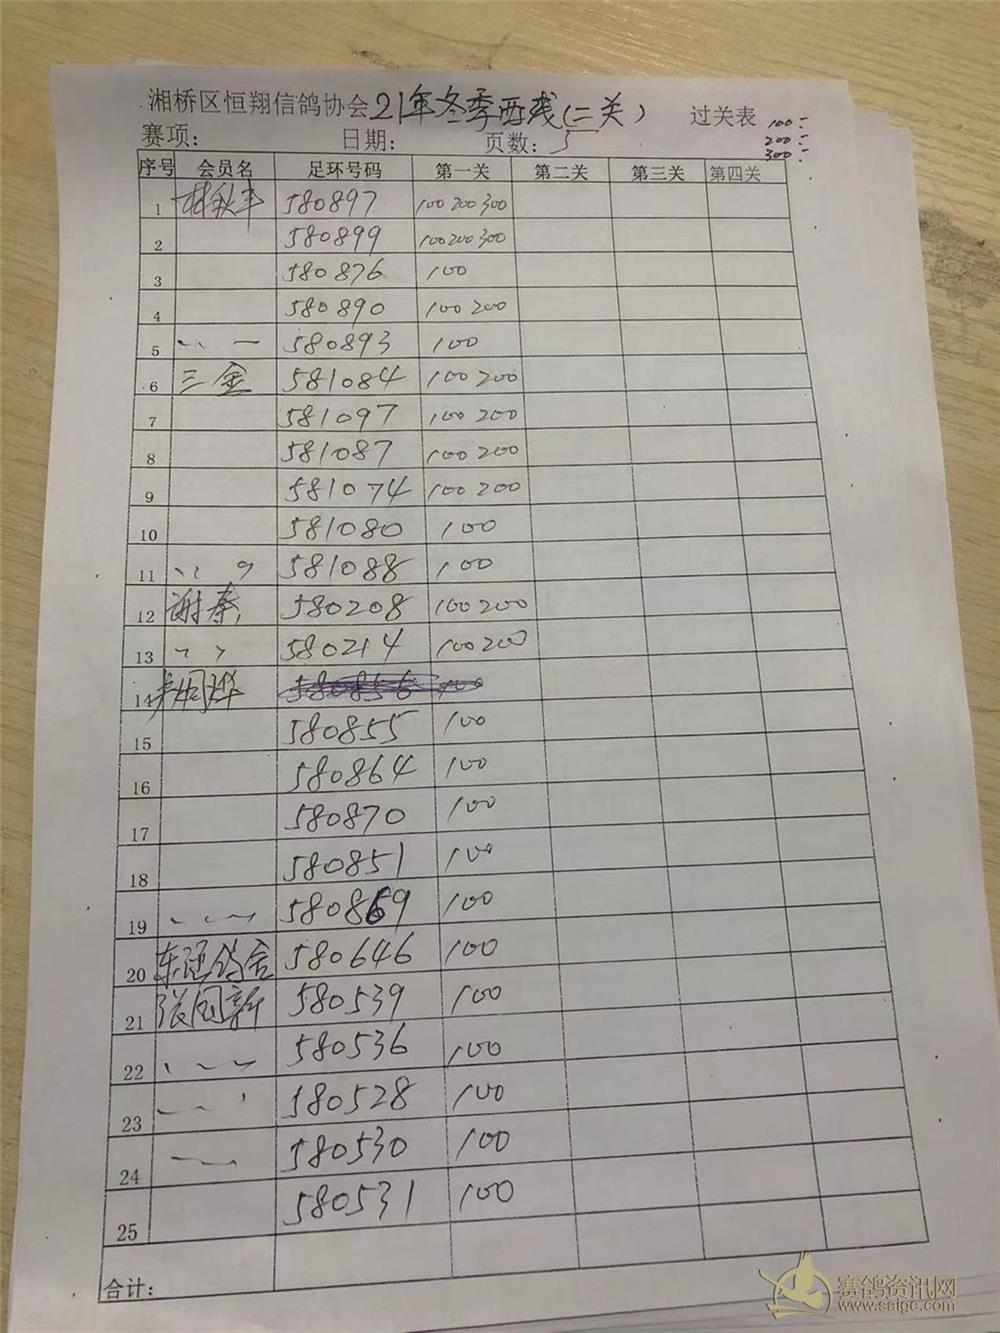 湘桥区恒翔信鸽协会21年冬季两残(二关) 过关表
赛项: 日期: 页数: 5
100:
200:
300:
序号 会员名 足环号码 第一关 第二关 第三关 第四关
1 林秋丰 580897 100 200 300
2 580899 100 200 300
3 580876 100
4 580890 100 200
5 580893 100
6 三金 581084 100 200
7 581097 100 200
8 581087 100 200
9 581074 100 200
10 581080 100
11 581088 100
12 谢秦 580208 100 200
13 580214 100 200
14 580856 100
15 580855 100
16 580864 100
17 580870 100
18 580851 100
19 580869 100
20 鸽舍 580646 100
21 张国新 580539 100
22 580536 100
23 580528 100
24 580530 100
25 580531 100
合计:
赛鸽资讯网
www.saigc.com